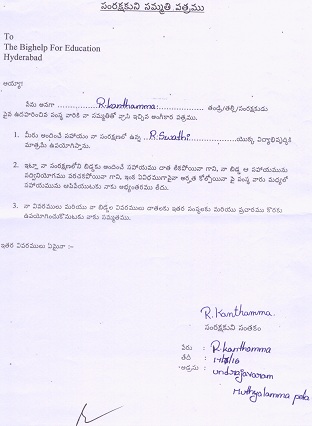 సంరక్షకుని సమ్మతి పత్రము
To
The Bighelp For Education
Hyderabad
అయ్యా!
నేను అనగా R.kanthamma తండ్రి/తల్లి/సంరక్షకుడు
పైన ఉదహరించిన సంస్థ వారికి నా సమ్మతితో వ్రాసి ఇచ్చిన అంగీకార పత్రము.
1. మీరు అందించే సహాయం నా సంరక్షణలో ఉన్న R.Swathi యొక్క విద్యాభివృద్ధికి
మాత్రమే ఉపయోగిస్తాను.
2. ఇట్లా నా సంరక్షణలోని బిడ్డకు అందించే సహాయము దాత లేకపోయినా గాని, నా బిడ్డ ఆ సహాయమును
సద్వినియోగము పరచకపోయినా గాని, ఇంక ఏవిధముగానైనా అర్హత కోల్పోయినా పై సంస్థ వారు మధ్యలో
సహాయమును ఆపివేయుటకు నాకు అభ్యంతరము లేదు.
3. నా వివరములు మరియు నా బిడ్డల వివరములు దాతలకు ఇతర సంస్థలకు మరియు ప్రచారము కొరకు
ఉపయోగించుకొనుటకు నాకు సమ్మతము.
ఇతర వివరములు ఏమైనా :-
R.Kanthamma
సంరక్షకుని సంతకం
పేరు : R.kanthamma
తేదీ :
అడ్రసు : undrajavaram
Muthyalamma peta